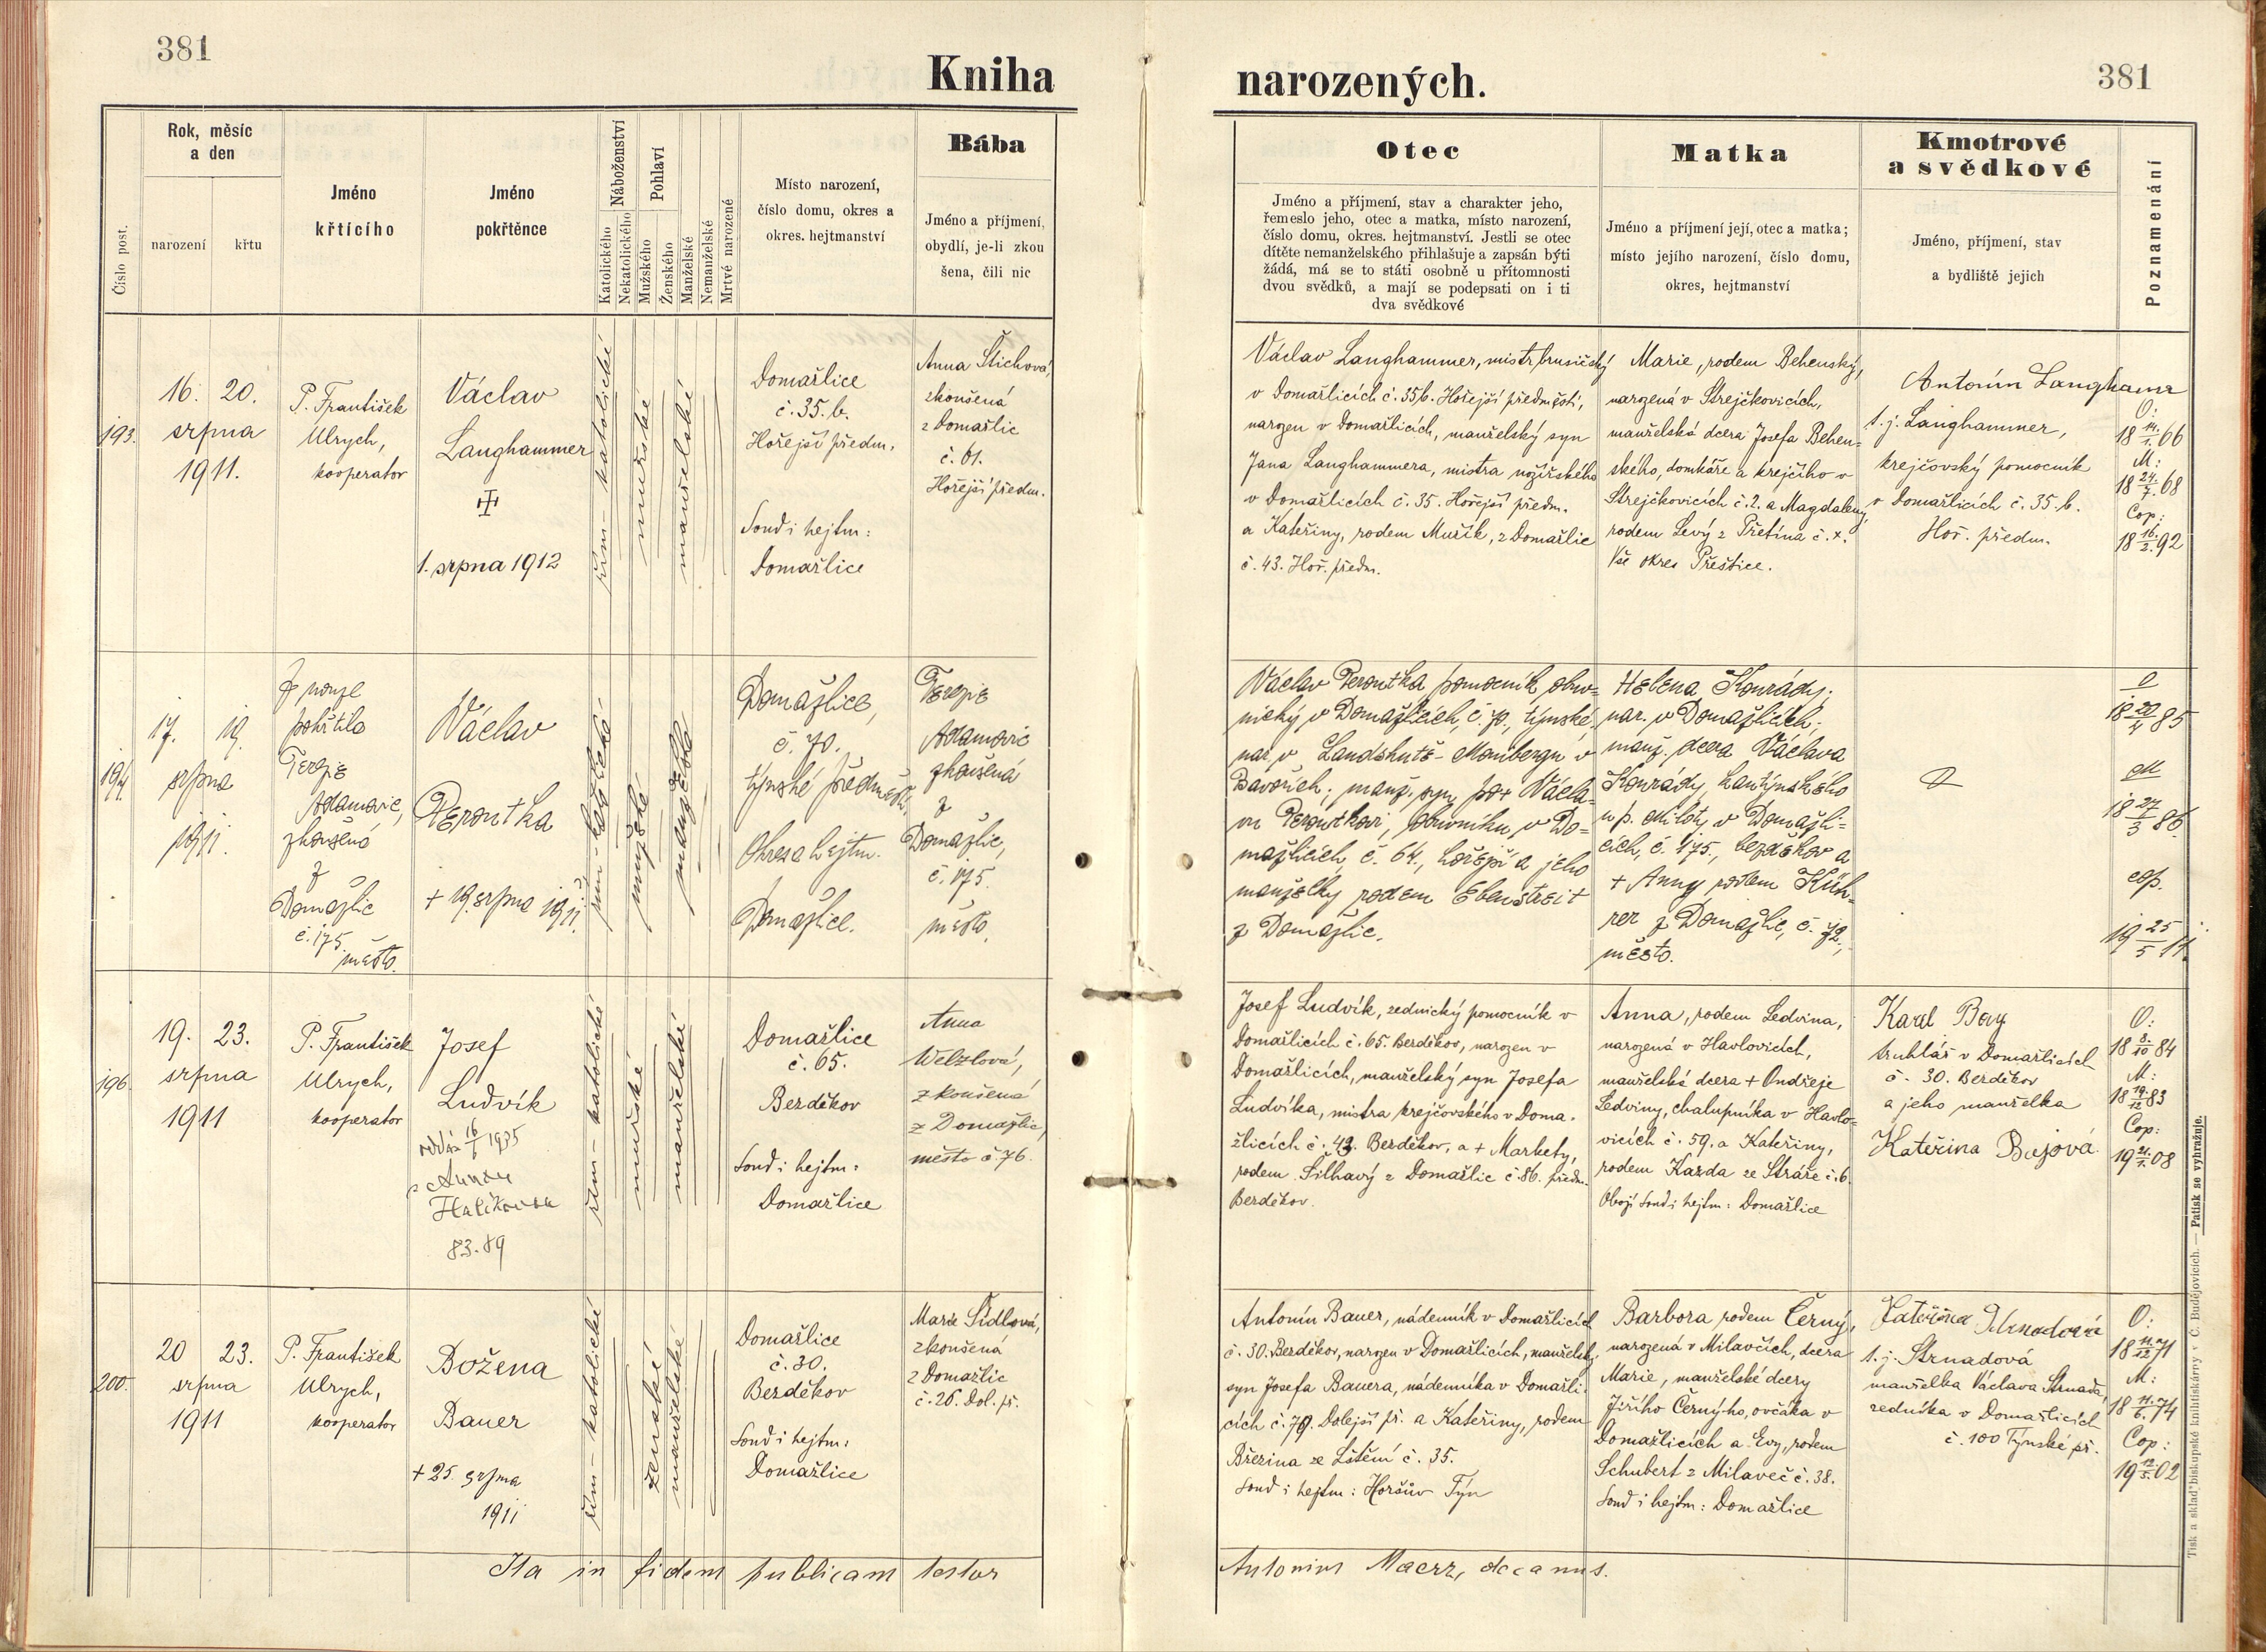 381
Kniha
Číslo post.
Rok, měsíc
a den
narození
křtu
Jméno
křtícího
Jméno
pokřtěnce
Náboženství
Katolického
Nekatolického
Pohlaví
Mužského
Ženského
Manželské
Nemanželské
Mrtvé narozené
Místo narození,
číslo domu, okres a
okres. hejtmanství
Bába
Jméno a příjmení,
obydlí, je-li zkou
šena, čili nic
193.
16. 20.
srpna
1911.
P. František
Ulrych,
kooperator
Václav
Langhammer
1. srpna 1912
řím katolické
mužské
manželské
Domažlice
č. 35. b.
Hořejší předm.
Soud i hejtm:
Domažlice
Anna Štichová,
zkoušená
z Domažlic
č. 61.
Hořejší předm.
194.
17. 19.
srpna
1911.
Z nouze
pokřtila
Terezie
Adamovic,
zkoušená
z
Domažlic
č. 175.
město.
Václav
Peroutka
+ 19. srpna 1911.
řím-katolické
mužské
manželské
Domažlice,
č. 70.
týnské předměstí,
Okres a hejtm.
Domažlice.
Terezie
Adamovic
zkoušená
z
Domažlic,
č. 175.
město.
196.
19. 23.
srpna
1911
P. František
Ulrych,
kooperator
Josef
Ludvík
16 1935
83.89
řím-katolické
mužské
manželské
Domažlice
č. 65.
Bezděkov
Soud i hejtm:
Domažlice
Anna
Welzlová,
zkoušená
z Domažlic,
město č. 76.
200.
20 23.
srpna
1911
P. František
Ulrych,
kooperator
Božena
Bauer
+ 25. srpna
1911
řím-katolické
ženské
manželské
Domažlice
č. 30.
Bezděkov
Soud i hejtm:
Domažlice
Marie Šídlová,
zkoušená
z Domažlic
č. 26. Dol. př.
Ita in fidem publicam testor
narozených.
381
Otec
Jméno a příjmení, stav a charakter jeho,
řemeslo jeho, otec a matka, místo narození,
číslo domu, okres. hejtmanství. Jestli se otec
dítěte nemanželského přihlašuje a zapsán býti
žádá, má se to státi osobně u přítomnosti
dvou svědků, a mají se podepsati on i ti
dva svědkové
Matka
Jméno a příjmení její, otec a matka;
místo jejího narození, číslo domu,
okres, hejtmanství
Kmotrové
a svědkové
Jméno, příjmení, stav
a bydliště jejich
Poznamenání
Václav Langhammer, mistr brusičský
v Domažlicích č. 35b. Hořejší předměstí,
narozen v Domažlicích, manželský syn
Jana Langhammera, mistra nožířského
v Domažlicích č. 35. Hořejší předm.
a Kateřiny, rodem Mužík, z Domažlic
č. 43. Hoř. předm.
Marie, rodem Behenský,
narozená v Strejčkovicích,
manželská dcera Josefa Behen-
ského, domkáře a krejčího v
Strejčkovicích č. 2. a Magdaleny
rodem Levý z Přetína č. x.
Vše okres Přeštice.
Antonín Langhamr
t. j. Langhammer,
krejčovský pomocník
v Domažlicích č. 35. b.
Hoř. předm.
O:
18 14./1. 66
M:
18 24./7. 68
Cop:
18 16./2. 92
Václav Peroutka pomocník obuv-
nický v Domažlicích, č. 70., týnské,
nar. v Landshutě-Monibergu v
Bavořích; manž. syn po+ Václa-
vu Peroutkovi, obuvníku, v Do-
mažlicích č. 64., hořejší a jeho
manželky rodem Ebenstreit
z Domažlic.
Helena Konrády;
nar. v Domažlicích;
manž. dcera Václava
Konrády, kantýnského
u p. Miloty, v Domažli-
cích, č. 175., bezděkov a
+ Anny, rodem Küh-
rer z Domažlic, č. 72.,
město.
O
18 20/4 85
M
18 27/3 86.
cop.
19 25/5 11.
Josef Ludvík, zednický pomocník v
Domažlicích č. 65. Bezděkov, narozen v
Domažlicích, manželský syn Josefa
Ludvíka, mistra krejčovského v Doma-
žlicích č. 43. Bezděkov, a + Markety,
rodem Šilhavý z Domažlic č. 86. předm.
Bezděkov.
Anna, rodem Ledvina,
narozená v Havlovicích,
manželská dcera + Ondřeje
Ledviny, chalupníka v Havlo-
vicích č. 59. a Kateřiny,
rodem Kazda ze Stráže č. 6.
Obojí soud i hejtm: Domažlice
Karel
truhlář v Domažlicích
č. 30. Bezděkov
a jeho manželka
Kateřina Bujová.
O:
18 8./10 84
M:
18 19./12 83
Cop:
19 21./1. 08
Antonín Bauer, nádenník v Domažlicích
č. 30. Bezděkov, narozen v Domažlicích, manželský
syn Josefa Bauera, nádenníka v Domažli-
cích č. 79. Dolejší př. a Kateřiny, rodem
Březina ze Lštění č. 35.
Soud i hejtm: Horšův Týn
Barbora rodem Černý,
narozená v Milavčích, dcera
Marie, manželské dcery
Jiřího Černýho, ovčáka v
Domažlicích a Evy, rodem
Schubert z Milaveč č. 38.
Soud i hejtm: Domažlice
Kateřina Strnadová
t. j. Strnadová
manželka Václava Strnada,
zedníka v Domažlicích
č. 100 Týnské př.
O:
18 11./12 71
M:
18 11./6. 74
Cop:
19 12./5. 02
Antonius Maerz, decanus.
Tisk a sklad biskupské knihtiskárny v Č. Budějovicích. — Patisk se vyhražuje.